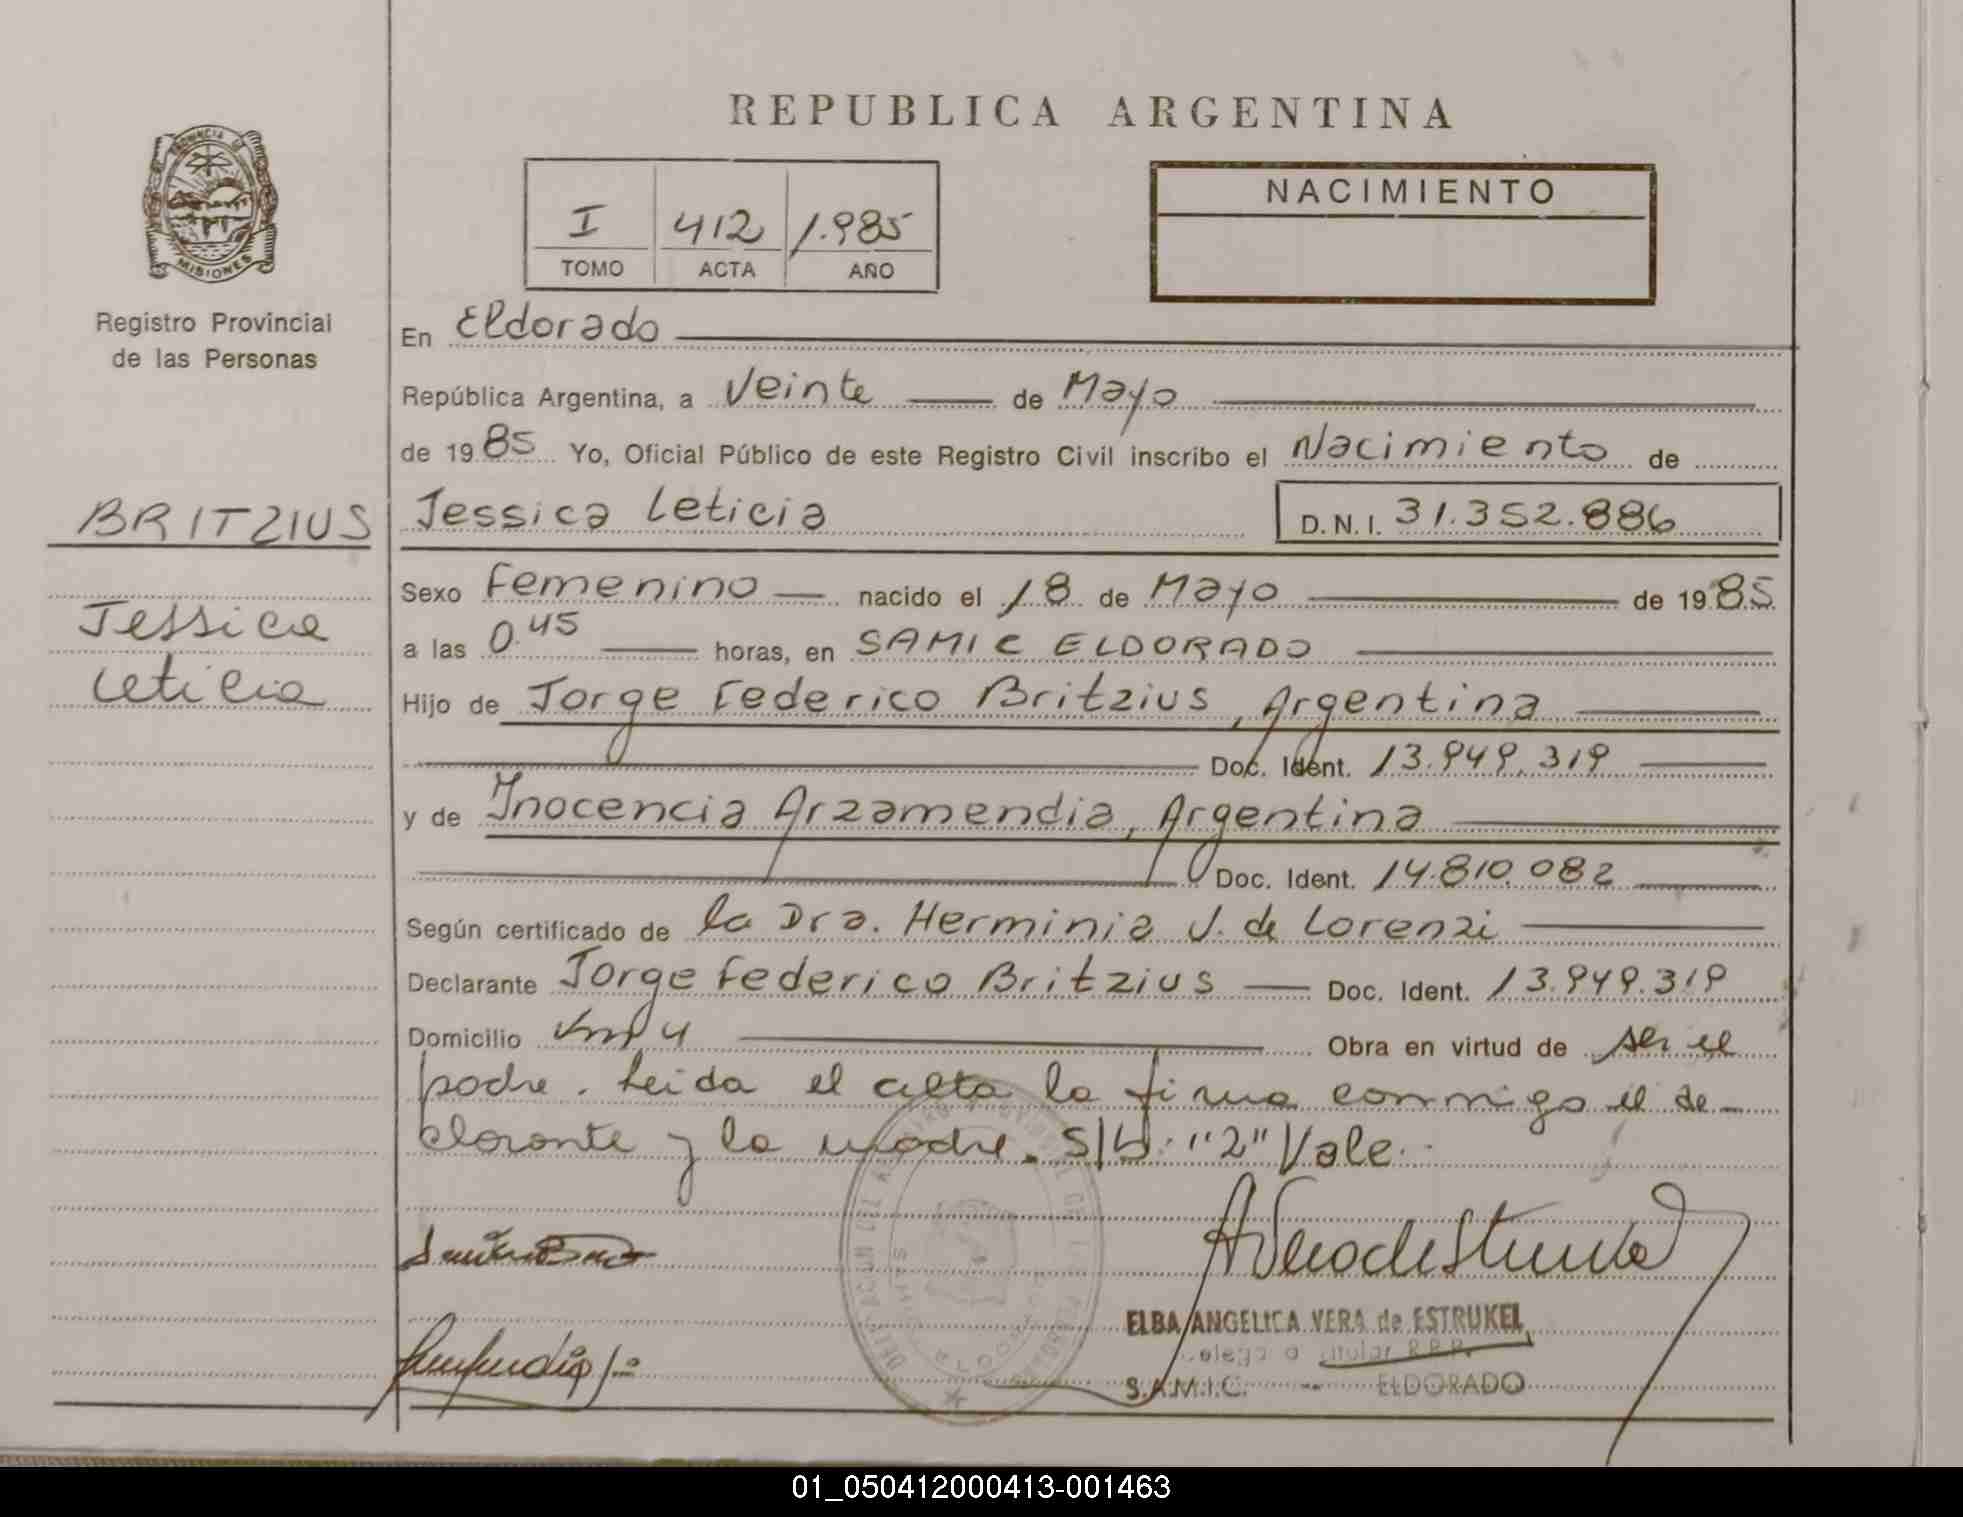 REPUBLICA ARGENTINA
PROVINCIA DE
MISIONES
Registro Provincial
de las Personas
I 412 1.985
TOMO ACTA AÑO
NACIMIENTO
En Eldorado
República Argentina, a Veinte de Mayo
de 19 85 Yo, Oficial Público de este Registro Civil inscribo el Nacimiento de
BRITZIUS
Jessica Leticia
D.N.I. 31.352.886
Jessica
Leticia
Sexo Femenino nacido el 18 de Mayo de 19 85
a las 0.45 horas, en SAMIC ELDORADO
Hijo de Jorge Federico Britzius, Argentina
Doc. Ident. 13.949.319
y de Inocencia Arzamendia, Argentina
Doc. Ident. 14.810.082
Según certificado de la Dra. Herminia J. de Lorenzi
Declarante Jorge Federico Britzius Doc. Ident. 13.949.319
Domicilio km 4 Obra en virtud de ser el
padre. Leida el acta la firma conmigo el de-
clarante y la madre. S/b: "2" Vale.
ELBA ANGELICA VERA de ESTRUKEL
titular R.P.P.
S.A.M.I.C. -- ELDORADO
01_050412000413-001463